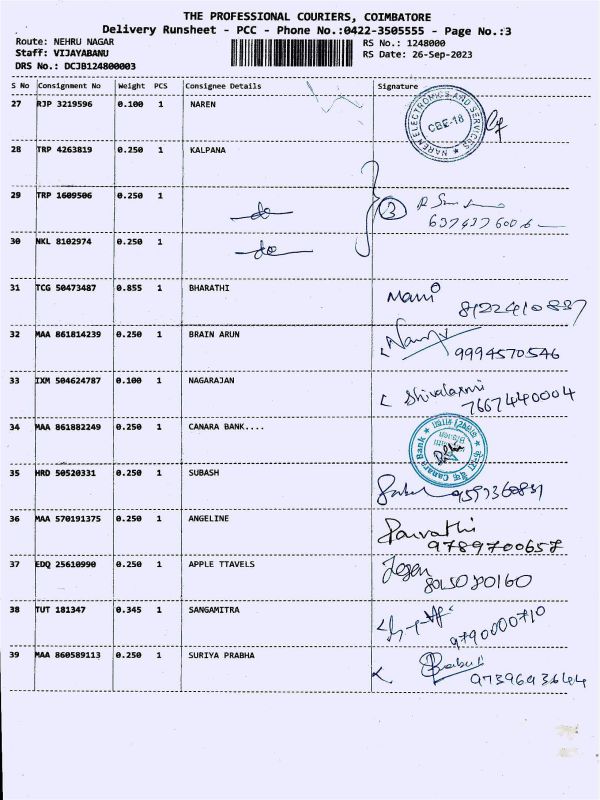 THE PROFESSIONAL COURIERS, COIMBATORE
Delivery Runsheet - PCC - Phone No.:0422-3505555 - Page No.:3
Route: NEHRU NAGAR RS No.: 1248000
Staff: VIJAYABANU RS Date: 26-Sep-2023
DRS No.: DCJB124800003
S No Consignment No Weight PCS Consignee Details Signature
27 RJP 3219596 0.100 1 NAREN
NAREN ELECTRONICS AND SERVICES
CBE-18
28 TRP 4263819 0.250 1 KALPANA
29 TRP 1609506 0.250 1 do 3
30 NKL 8102974 0.250 1 do
31 TCG 50473487 0.855 1 BHARATHI Mani
8122410887
32 MAA 861814239 0.250 1 BRAIN ARUN
9994570546
33 IXM 504624787 0.100 1 NAGARAJAN Shivalaxmi
7667440004
34 MAA 861882249 0.250 1 CANARA BANK....
Canara Bank
35 HRD 50520331 0.250 1 SUBASH
36 MAA 570191375 0.250 1 ANGELINE Parvathi
9789700657
37 EDQ 25610990 0.250 1 APPLE TTAVELS
38 TUT 181347 0.345 1 SANGAMITRA
9790000710
39 MAA 860589113 0.250 1 SURIYA PRABHA